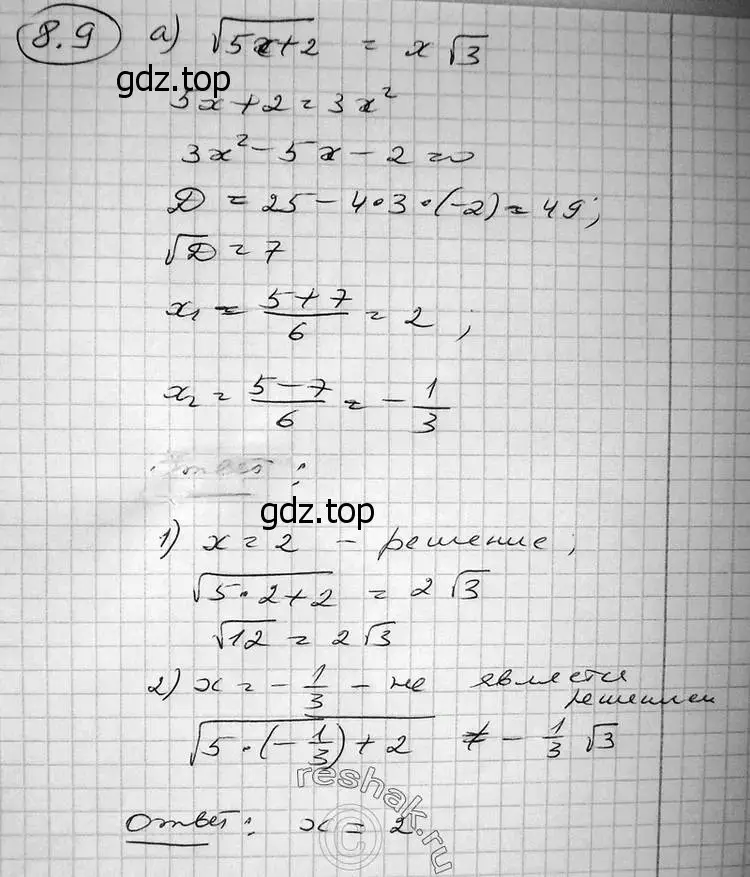 8.9 а) √5x+2 = x √3
gdz.top
5x+2=3x²
3x²-5x-2=0
D = 25-4·3·(-2)=49;
√D = 7
x₁ = 5+7/6 = 2 ;
x₂ = 5-7/6 = - 1/3
Ответ :
gdz.top
1) x=2 - решение ;
√5·2+2 = 2 √3
√12 = 2 √3
2) x = - 1/3 - не является
решением
√5·(-1/3)+2 ≠ - 1/3 √3
reshak.ru
©
Ответ : x = 2